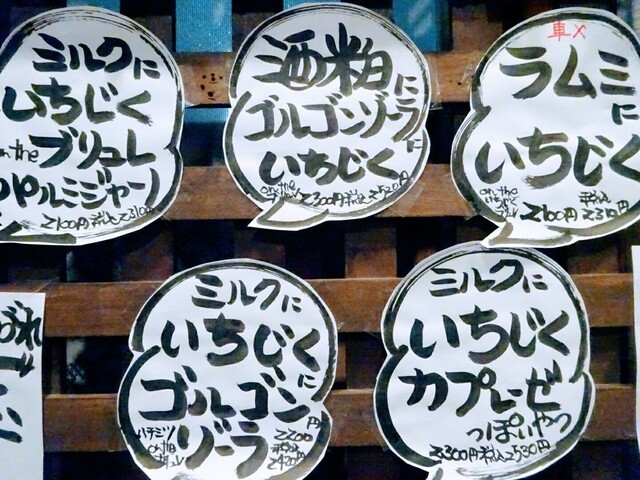 ミルクに
いちじく
on the ブリュレ
パルミジャーノ
2100円 税込2310円
酒粕に
ゴルゴンゾーラに
いちじく
on the
2300円 税込2530円
車×
ラムミ
に
いちじく
on the
2100円 税込2310円
ミルクに
いちじくに
ゴルゴン
ゾーラ
ハチミツ
on the
2200円
税込
2420円
ミルクに
いちじく
カプレーゼ
っぽいやつ
2300円 税込2530円